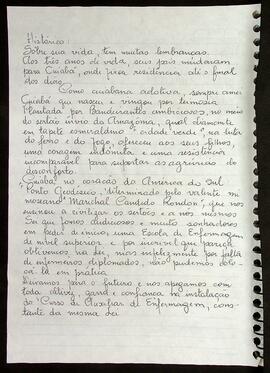 Histórico:
Sobre sua vida, tem muitas lembranças.
Aos três anos de vida, seus pais mudaram
para Cuiabá, onde fixa residência até o final
dos dias.
Como cuiabana adotiva, sempre amei
Cuiabá que nasceu e vingou por teimosia
Plantada por Bandeirantes ambiciosos, no meio
do sertão bravio da Amazonia, qual diamante
em tapete esmeraldino "cidade verde", na luta
do ferro e do fogo, ofereceu aos seus filhos,
uma coragem indômita e uma resistência
incomparável para suportar as agruras do
desconforto.
Cuiabá, no coração da América do Sul
"Ponto Geodésico", determinado pelo valente mi
moseano "Marechal Candido Rondon", que nos
ensinou a civilizar os sertões e a nós mesmos
fomos audiciosos e muito sonhadores
em pedir de inicio, uma Escola de Enfermagem
de nivel superior e por incrivel que pareça
obtivemos na Lei, mas infelizmente por falta
de enfermeiros diplomados, não pudemos colo-
cá-lá em prática
Deixamos para o futuro e nos apegamos com
toda confiança na instalação
do "Curso de Auxiliar de Enfermagem, cons-
tante da mesma Lei